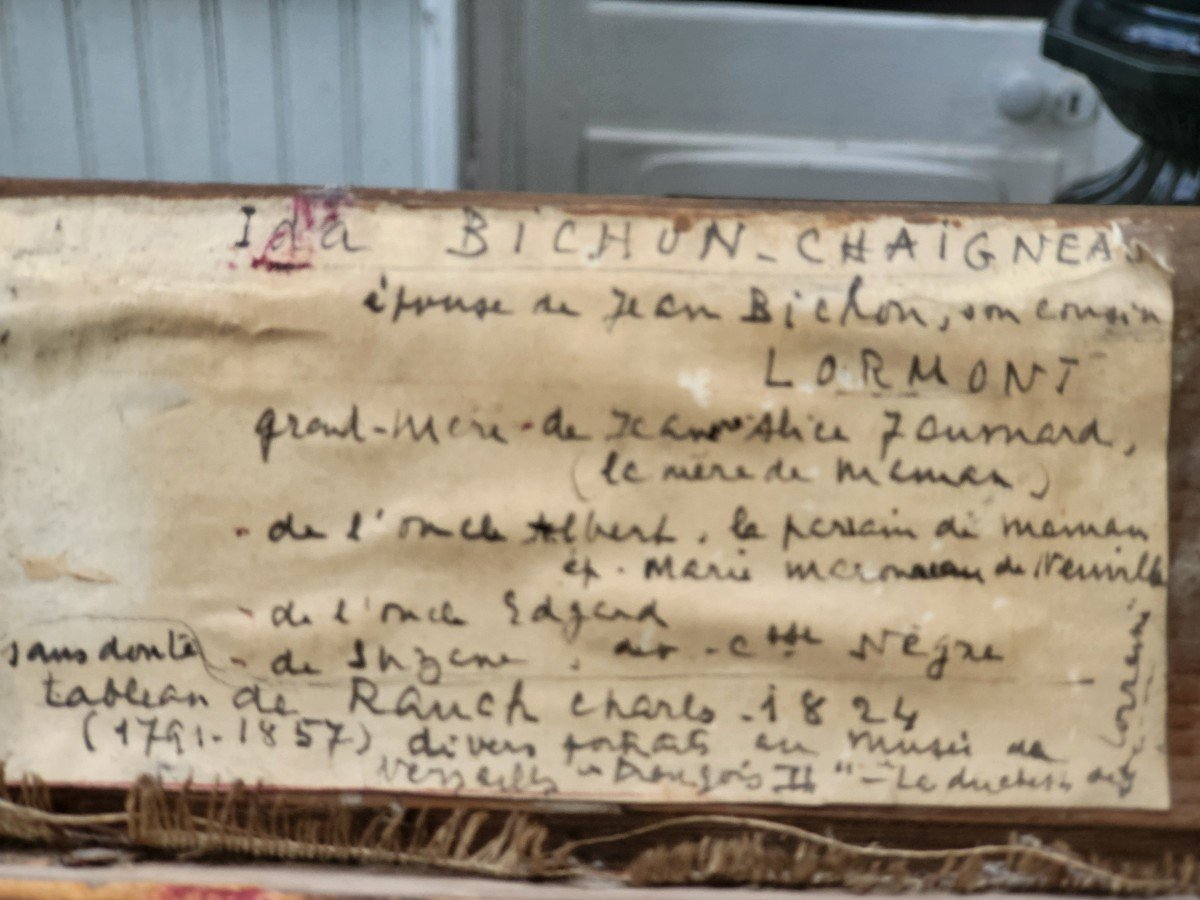 Ida BICHON-CHAÏGNEAU
épouse de Jean Bichon, son cousin
LORMONT
grand-mère de Jeanne Alice
(la mère de Maman)
- de l'oncle Albert, le parrain de maman
ép. Marie de Neuville
- de l'oncle Edgard
sans doute - de Suzane, Ctsse Nègre
tableau de Rauch Charles - 1824
(1791-1857) divers portraits au musée de
Versailles "François II" - La duchesse de
Lorraine